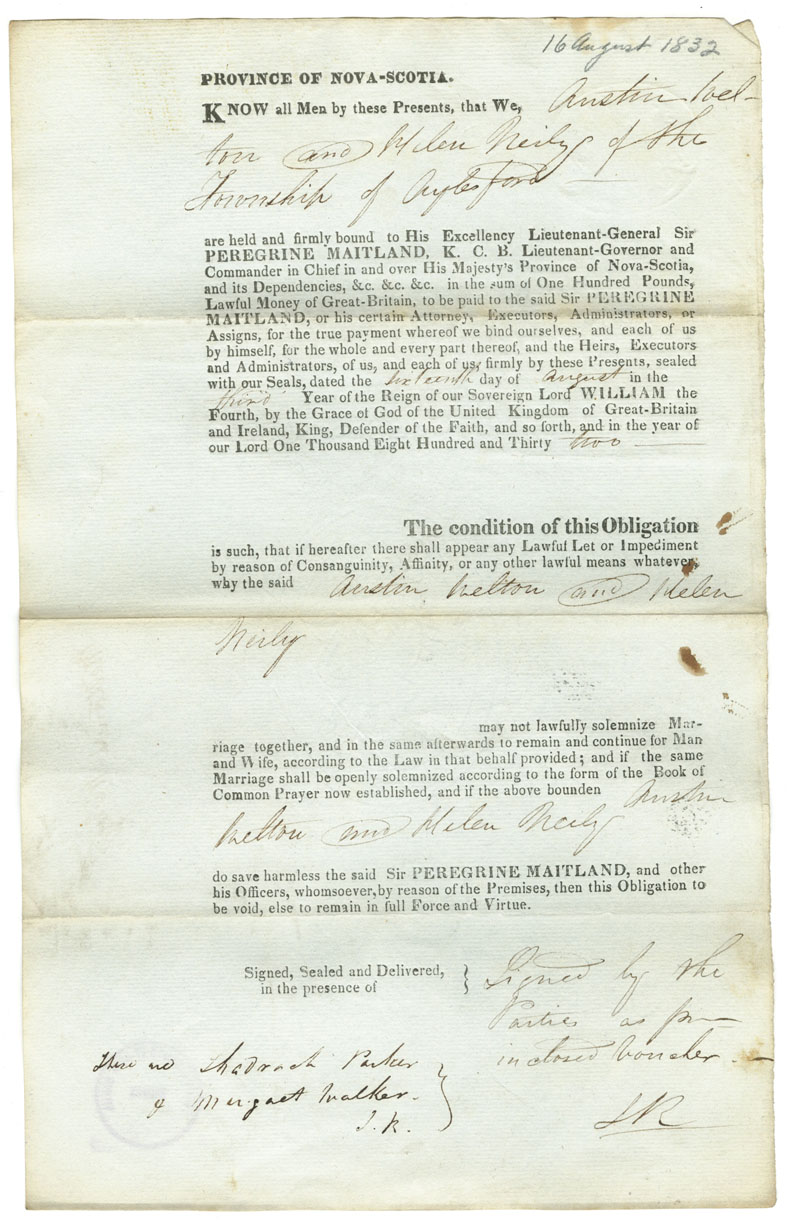 16 August 1832
PROVINCE OF NOVA-SCOTIA.
KNOW all Men by these Presents, that We, Austin Wel-
ton and Helen Neily of the
Township of Aylesford
are held and firmly bound to His Excellency Lieutenant-General Sir
PEREGRINE MAITLAND, K. C. B. Lieutenant-Governor and
Commander in Chief in and over His Majesty's Province of Nova-Scotia,
and its Dependencies, &c. &c. &c. in the sum of One Hundred Pounds,
Lawful Money of Great-Britain, to be paid to the said Sir PEREGRINE
MAITLAND, or his certain Attorney, Executors, Administrators, or
Assigns, for the true payment whereof we bind ourselves, and each of us
by himself, for the whole and every part thereof, and the Heirs, Executors
and Administrators, of us, and each of us, firmly by these Presents, sealed
with our Seals, dated the sixteenth day of August in the
third Year of the Reign of our Sovereign Lord WILLIAM the
Fourth, by the Grace of God of the United Kingdom of Great-Britain
and Ireland, King, Defender of the Faith, and so forth, and in the year of
our Lord One Thousand Eight Hundred and Thirty two
The condition of this Obligation
is such, that if hereafter there shall appear any Lawful Let or Impediment
by reason of Consanguinity, Affinity, or any other lawful means whatever,
why the said Austin Welton and Helen
Neily
may not lawfully solemnize Mar-
riage together, and in the same afterwards to remain and continue for Man
and Wife, according to the Law in that behalf provided; and if the same
Marriage shall be openly solemnized according to the form of the Book of
Common Prayer now established, and if the above bounden Austin
Welton and Helen Neily
do save harmless the said Sir PEREGRINE MAITLAND, and other
his Officers, whomsoever, by reason of the Premises, then this Obligation to
be void, else to remain in full Force and Virtue.
Signed, Sealed and Delivered,
in the presence of
Signed by the
Parties as pr
inclosed Voucher.
Shadrach Parker
& Margaet Walker.